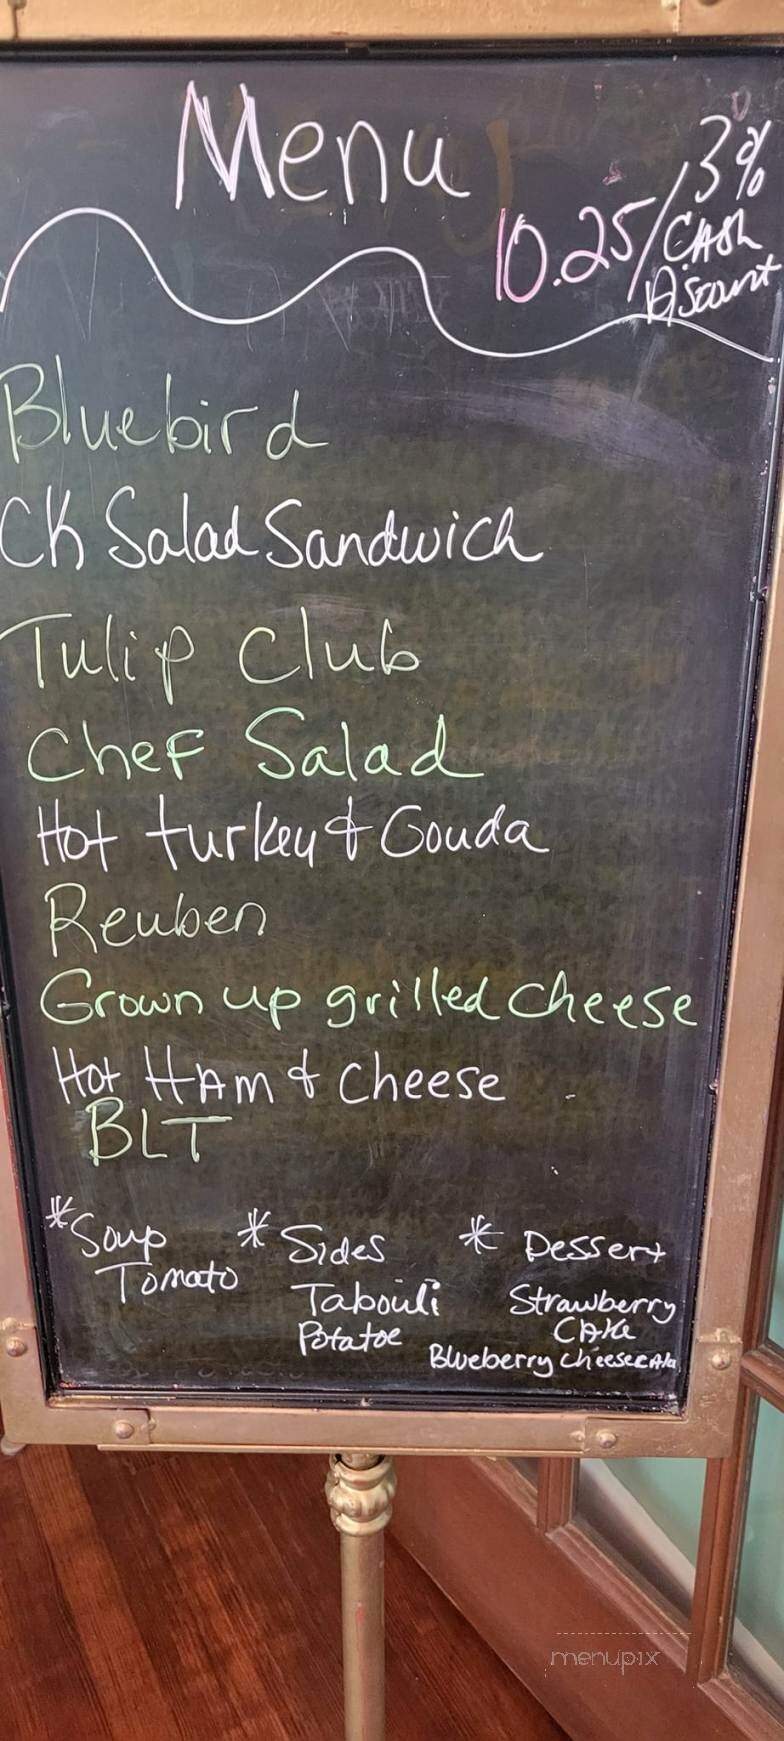 Menu
10.25/3%
CASh
Discount
Bluebird
CK Salad Sandwich
Tulip Club
Chef Salad
Hot turkey & Gouda
Reuben
Grown up grilled cheese
Hot HAm & cheese
BLT
*Soup
Tomato
* Sides
Tabouli
Potatoe
* Dessert
Strawberry
CAKe
Blueberry cheesecake
menupix